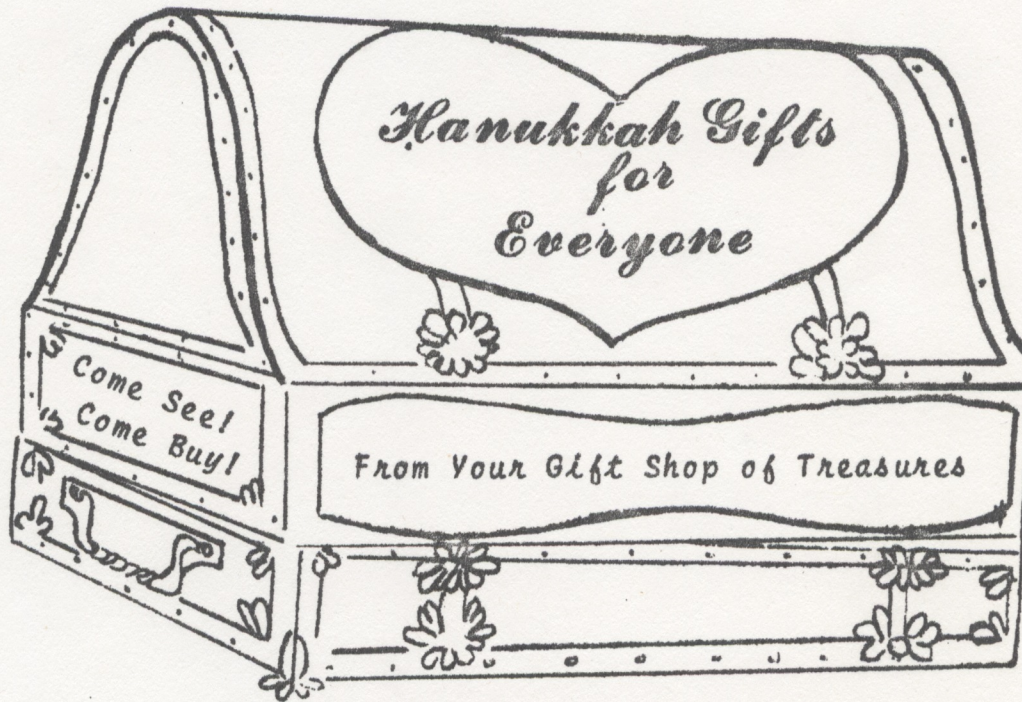 Hanukkah Gifts
for
Everyone
Come See!
Come Buy!
From Your Gift Shop of Treasures